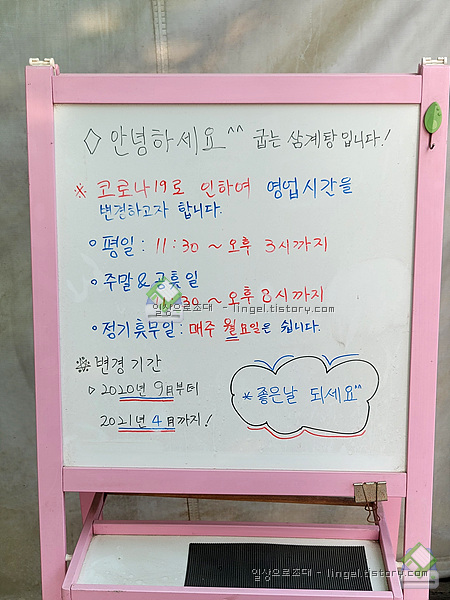 ◇ 안녕하세요^^ 굽는 삼계탕입니다!
※ 코로나19로 인하여 영업시간을
변경하고자 합니다.
• 평일 : 11:30 ~ 오후 3시까지
• 주말 & 공휴일
11:30 ~ 오후 8시까지
일상으로초대 - lingel.tistory.com
• 정기휴무일 : 매주 월요일은 쉽니다.
※ 변경 기간
▷ 2020년 9월부터
2021년 4월까지!
* 좋은날 되세요^^
일상으로초대 - lingel.tistory.com